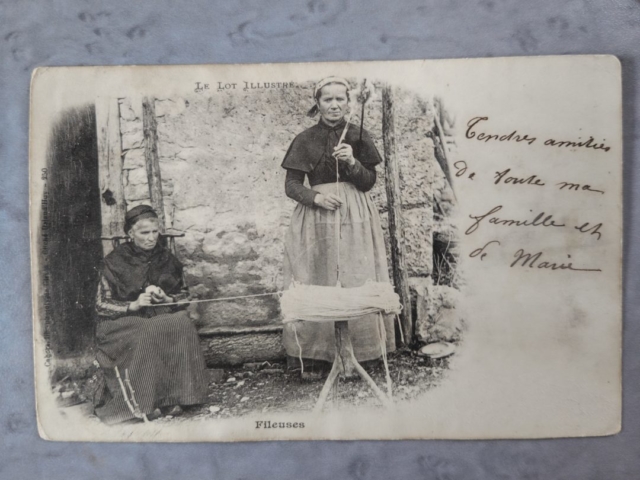 LE LOT ILLUSTRÉ
Tendres amitiés
de toute ma
famille et
de Marie
Fileuses